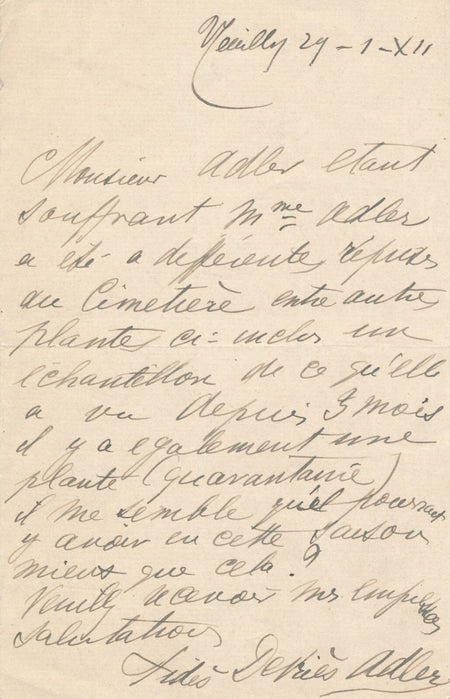 Neuilly 29-1-XII
Monsieur Adler etant
souffrant Mme Adler
a été a differentes reprises
au Cimetière entre autres
plantes ci-inclus un
échantillon de ce qu'elle
a vu depuis 3 mois
il y a egalement une
plante (quarantaine)
il me semble qu'il pourrait
y avoir en cette saison
mieux que cela?
Veuilly recevoir mes empressées
salutations
Fidès Devriès Adler